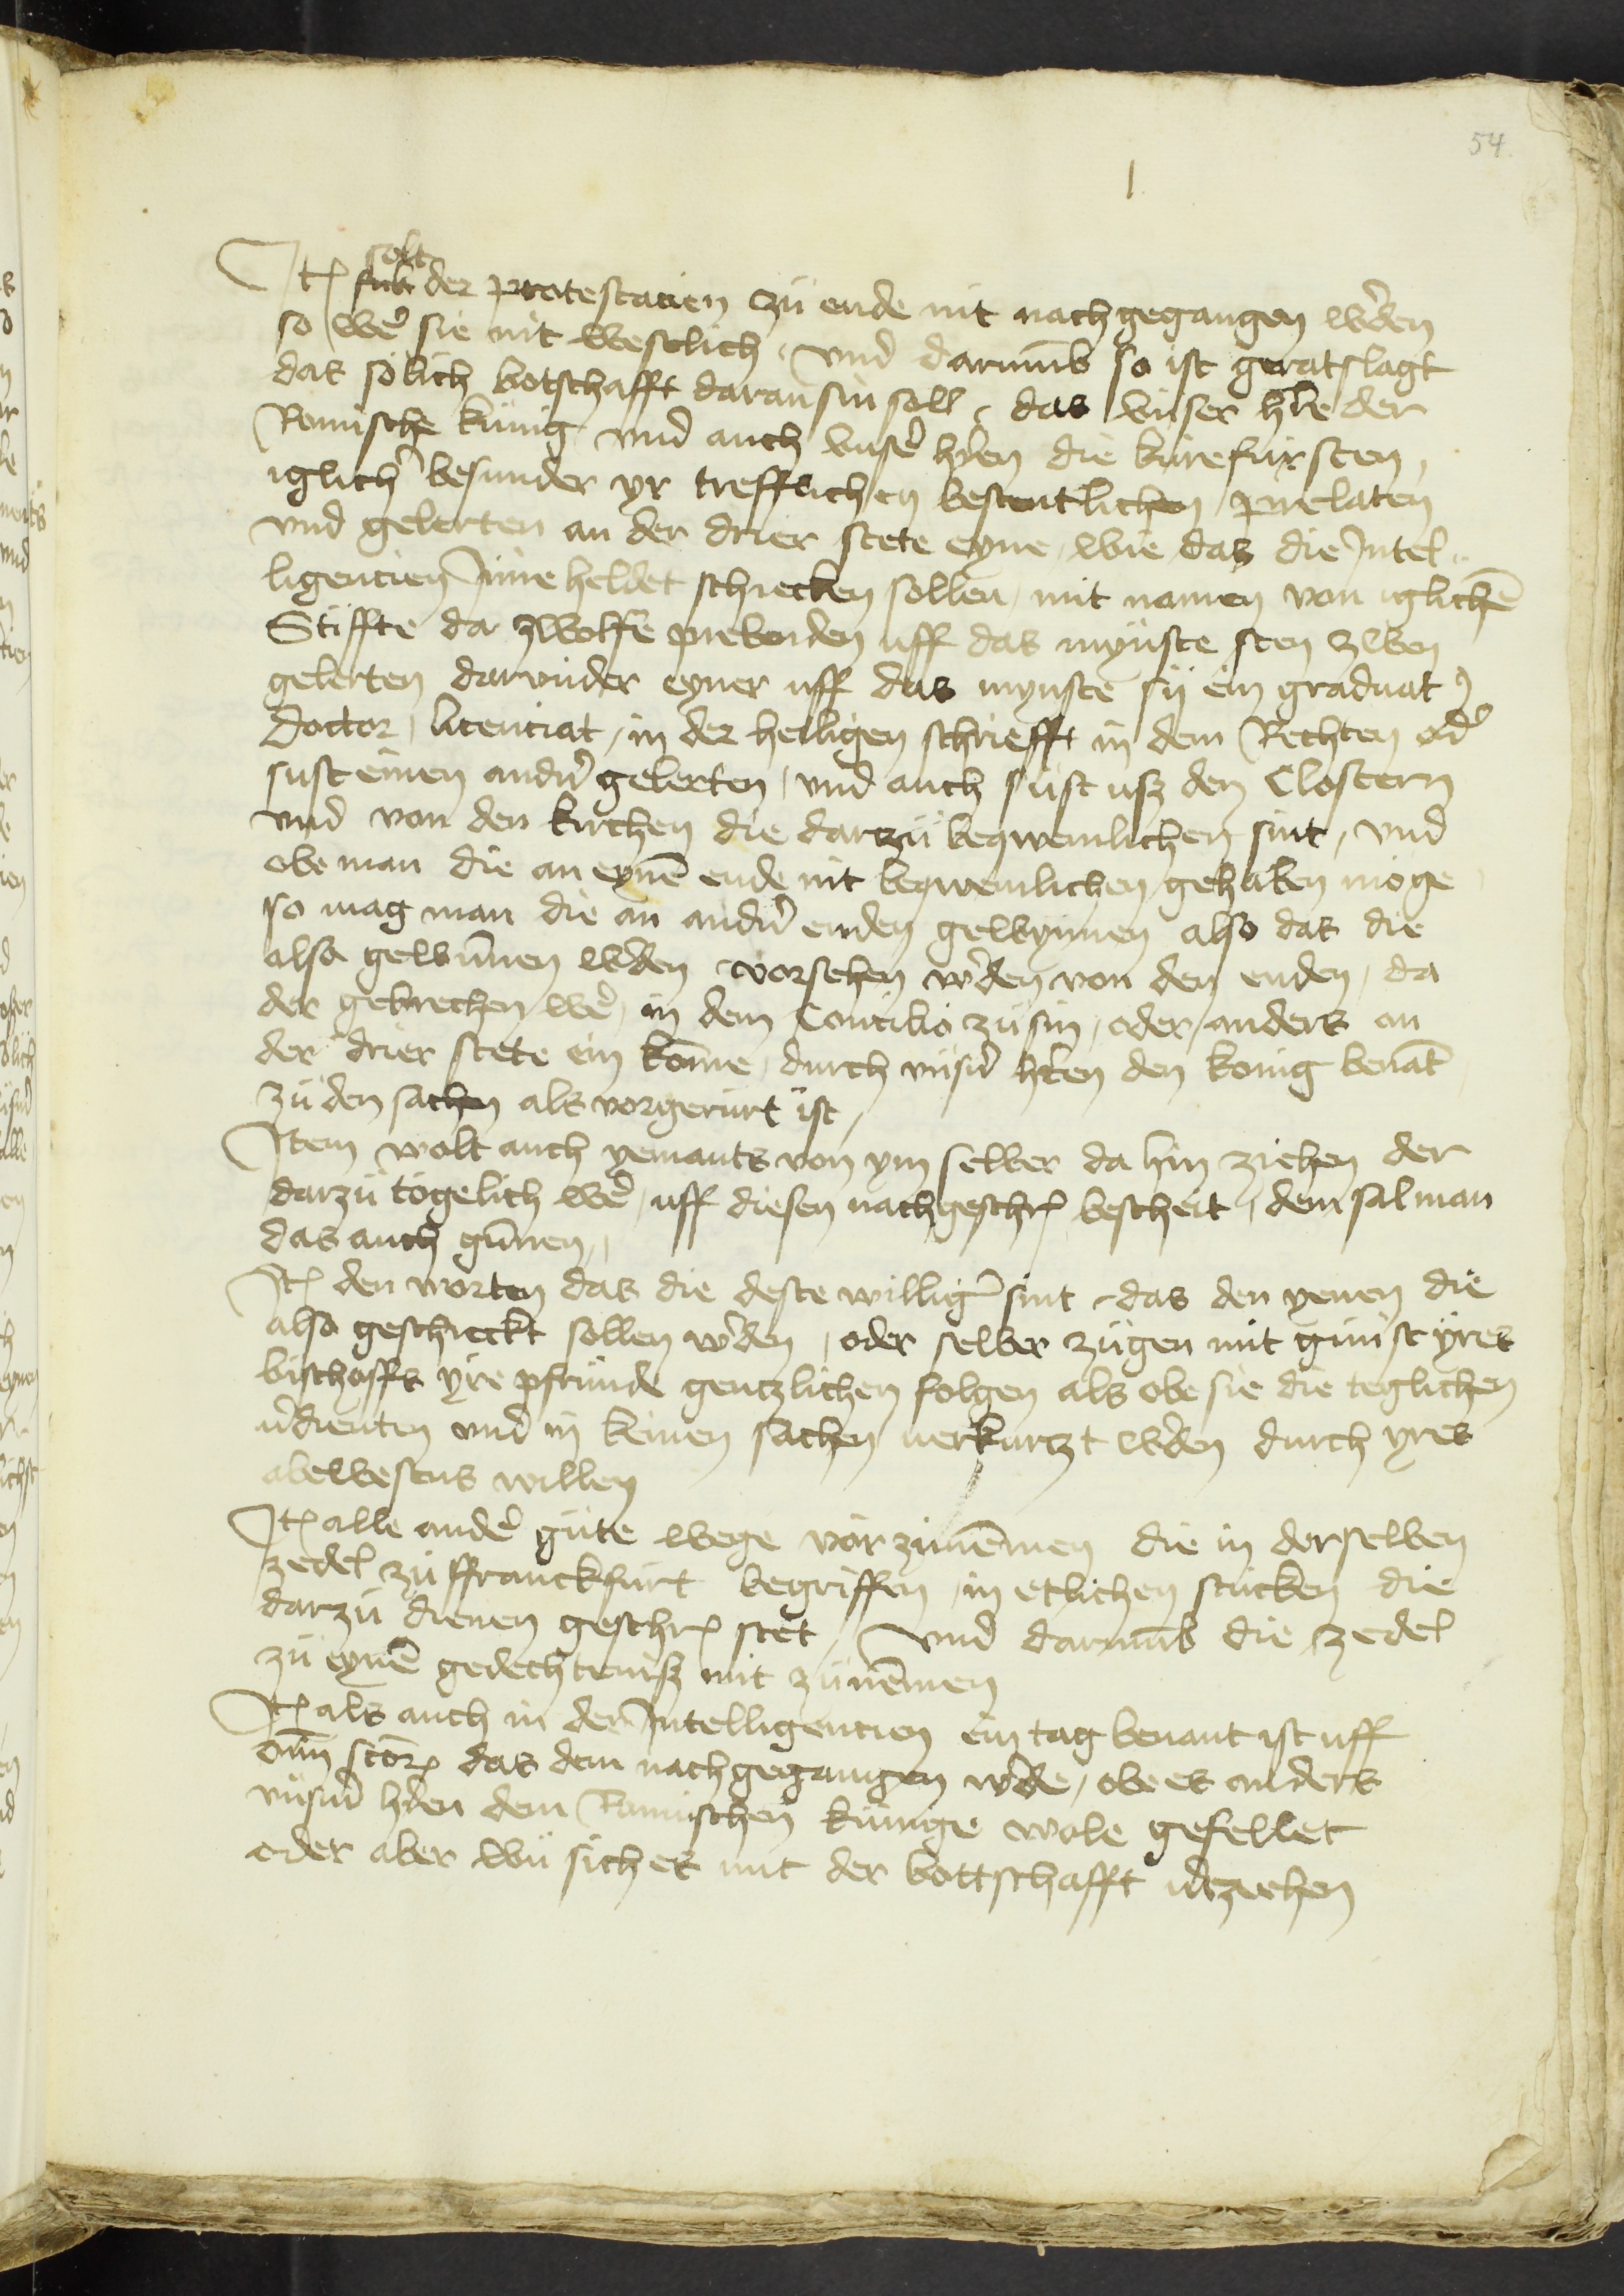 54
solt
It̄ sub der protestacien zü ende nit nach gegangen wˀden
so weˀ sie nit westlich / vnd darumb so ist geratslagt
das solich botschafft daran sin soll / das vnser hˀre der
Romische kunig / vnd auch vnseˀ hˀren die kürefürsten /
iglichˀ besunder yr trefflichen bestentlichen prelaten
vnd gelerten an der drier stete eyne / wie das die Intel
ligencien Inne heldet schiecken sollen / mit namen von iglichē
Stiffte da zwolffe prebenden uff das mynste sten zwen
gelerten darvnder eyner uff das mynste sy ein graduat
Doctor / licenciat / in der heiligen schriefft in dem Rechten odˀ
sust einen andˀn gelerten / vnd auch sust usz den Clostern
vnd von den kirchen die darzü beqwemlichen sint / vnd
obe man die an eynē ende nit beqwemlichen gehaben moge
so mag man die an andˀn enden gewynnen also das die
also gewūnen wˀden vorsehen wˀden von den enden / da
der gebrechen weˀ / in dem Concilio zü sin / oder anders an
der drier stete ein kōme / durch vnsˀn hˀren den konig benāt
zü den sachen als vorgerürt ist /
Item wolt auch yemants von ym selber da hin ziehen der
darzü togelich weˀ / uff diesen nachgeschr̄ bescheit / dem sal man
das auch gūnen /
It̄ den worten das die deste willigˀ sint / das den yenen die
also geschieckt sollen wˀden / oder selber zügen mit günst yres
bischoffs yre pfründe gentzlichen folgen als obe sie die teglichen
vˀdienten vnd in keinen sachen verkurtzt wˀden durch yres
abewesens willen
It̄ alle andeˀ güte wege vor zünēmen die in derselben
zedel zü ffranckfurt begriffen / in etlichen stücken die
darzü dienen geschr̄ stet / vnd darumb die zedel
zü eynē gedechtenisz mit zünēmen
It̄ als auch in der Intelligencien ein tag benant ist uff
om̄ stor̄ das dem nach gegangen wˀde / obe es anders
vnsˀm hˀren dem Romischen künige wole gefellet
oder aber wü sich es mit der bottschafft vˀtziehen